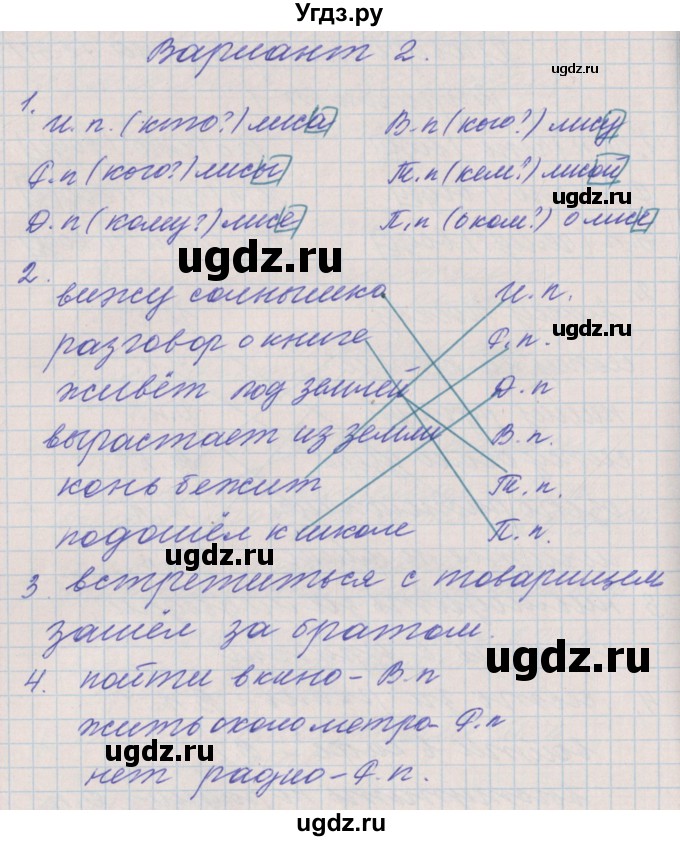 Угдз.ру
Вариант 2.
ugdz.ru
1.
И. п. (кто?) лиса В.п (кого?) лису
ugdz.ru
Р.п (кого?) лисы Т.п (кем?) лисой
ugdz.ru
Д.п (кому?) лисе П.п (о ком?) о лисе
ugdz.ru
2.
вижу солнышко И.п.
ugdz.ru
разговор о книге Р.п.
живёт под землёй Д.п
вырастает из земли В.п.
конь бежит Т.п.
подошёл к школе П.п.
ugdz.ru
3. встретиться с товарищем
зашёл за братом.
ugdz.ru
4. пойти в кино - В.п
жить около метро - Р.п
ugdz.ru
нет радио - Р.п.
ugdz.ru